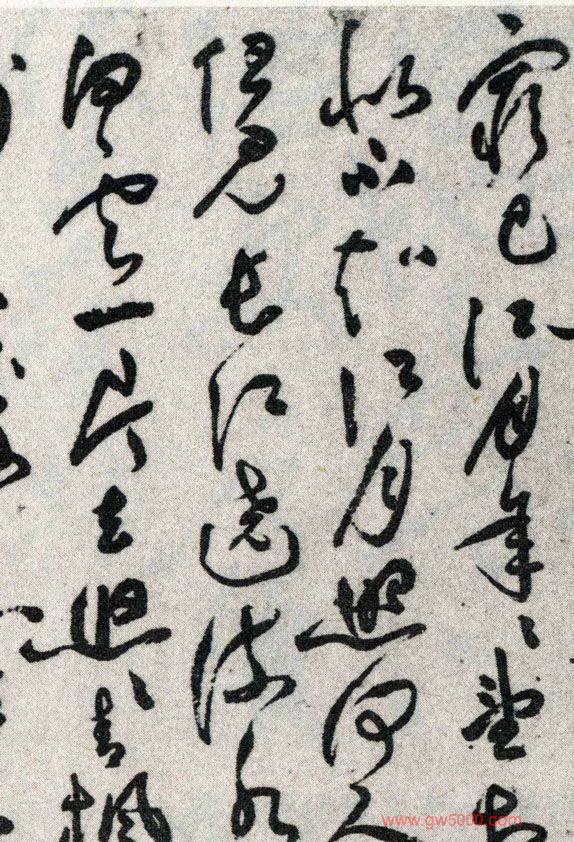 窮已江月年〻望
似不知江月照何人
但見長江送流水
白雲一片去悠〻青楓